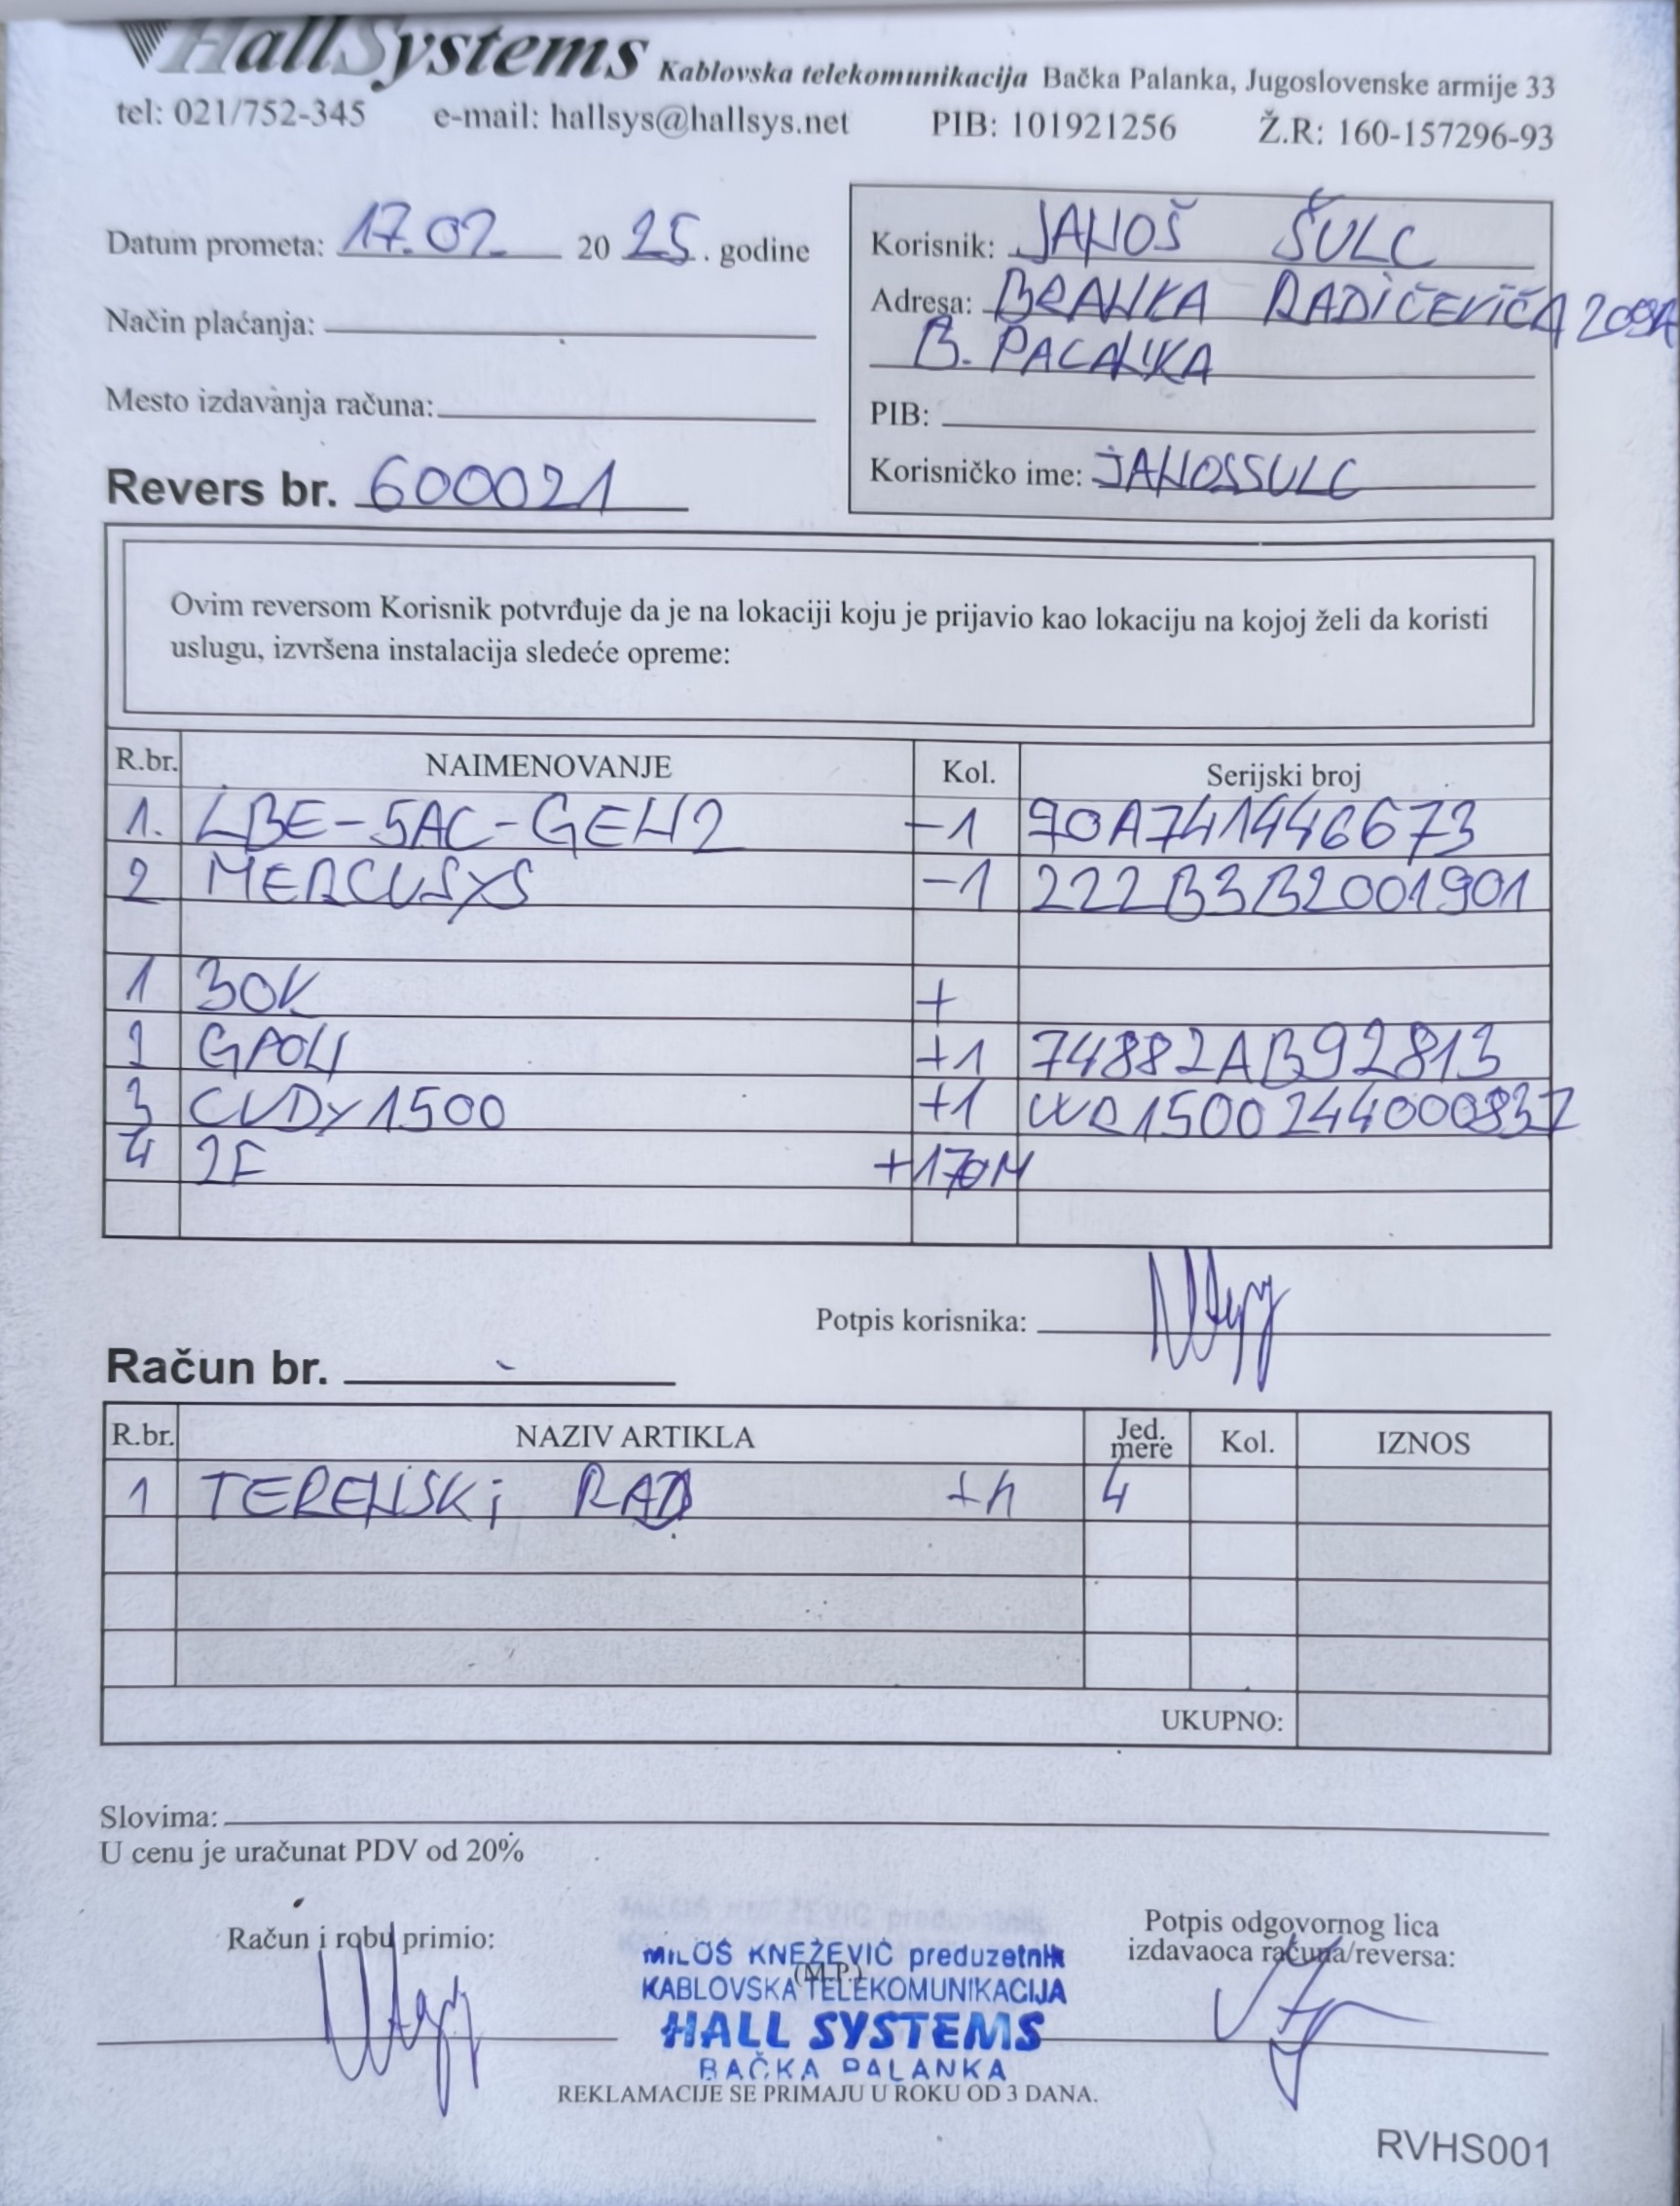 HallSystems Kablovska telekomunikacija Bačka Palanka, Jugoslovenske armije 33
tel: 021/752-345 e-mail: hallsys@hallsys.net PIB: 101921256 Ž.R: 160-157296-93
Datum prometa: 17.02. 2025. godine
Način plaćanja:
Mesto izdavanja računa:
Revers br. 600021
Korisnik: JANOŠ ŠULC
Adresa: BRANKA RADIČEVIČA
B. PALANKA
PIB:
Korisničko ime: JANOSSULC
Ovim reversom Korisnik potvrđuje da je na lokaciji koju je prijavio kao lokaciju na kojoj želi da koristi
uslugu, izvršena instalacija sledeće opreme:
R.br. NAIMENOVANJE Kol. Serijski broj
1. LBE-5AC-GEN2 -1 90A741446673
2 MERCUSYS -1 222B3B2001901
1 BOK +
2 GPON +1 74882AB92813
3 CUDY 1500 +1 WR1500244000837
4 2F +170M
Potpis korisnika:
Račun br.
R.br. NAZIV ARTIKLA Jed. mere Kol. IZNOS
1 TERENSKi RAD 4
UKUPNO:
Slovima:
U cenu je uračunat PDV od 20%
Račun i robu primio:
MILOŠ KNEŽEVIĆ preduzetnik
(M.P.)
KABLOVSKA TELEKOMUNIKACIJA
HALL SYSTEMS
BAČKA PALANKA
Potpis odgovornog lica
izdavaoca računa/reversa:
REKLAMACIJE SE PRIMAJU U ROKU OD 3 DANA.
RVHS001